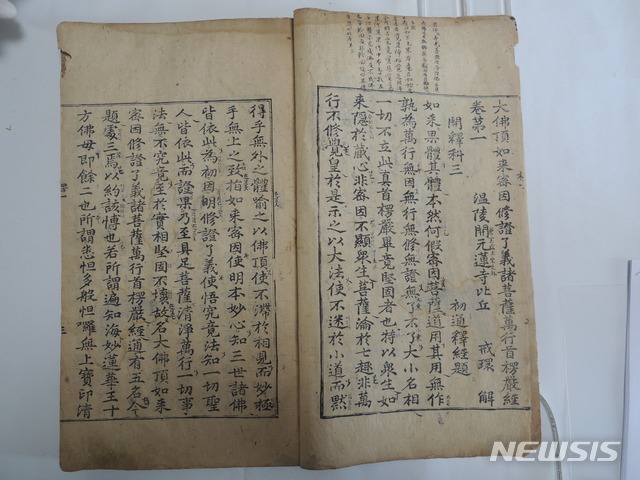 大佛頂如來密因修證了義諸菩薩萬行首楞嚴經
卷第一
溫陵開元蓮寺比丘 戒環 解
開釋科三 初通釋經題
如來果體其體本然何假密因菩薩道用其用無作
孰為萬行無因無行無修無證無了不了大小名相
一切不立此真首楞嚴畢竟堅固者也特以衆生如
來隱於藏心非密因不顯衆生菩薩淪於七趣非萬
行不修覺皇於是示之以大法使不迷於小道而默
得乎無外之體喻之以佛頂使不滯於相見而妙極
乎無上之致指如來密因使明本妙心知三世諸佛
皆依此為初因明修證了義使悟究竟法知一切聖
人皆依此而證果乃至具足菩薩清淨萬行一切事
法無不究竟至於實相堅固不壞故名大佛頂如來
密因修證了義諸菩薩萬行首楞嚴經道有五名今
題處三焉以約該博也若所謂遍知海妙蓮華王十
方佛母即餘二也所謂悉怛多般怛囉無上寶印淸
NEWSIS